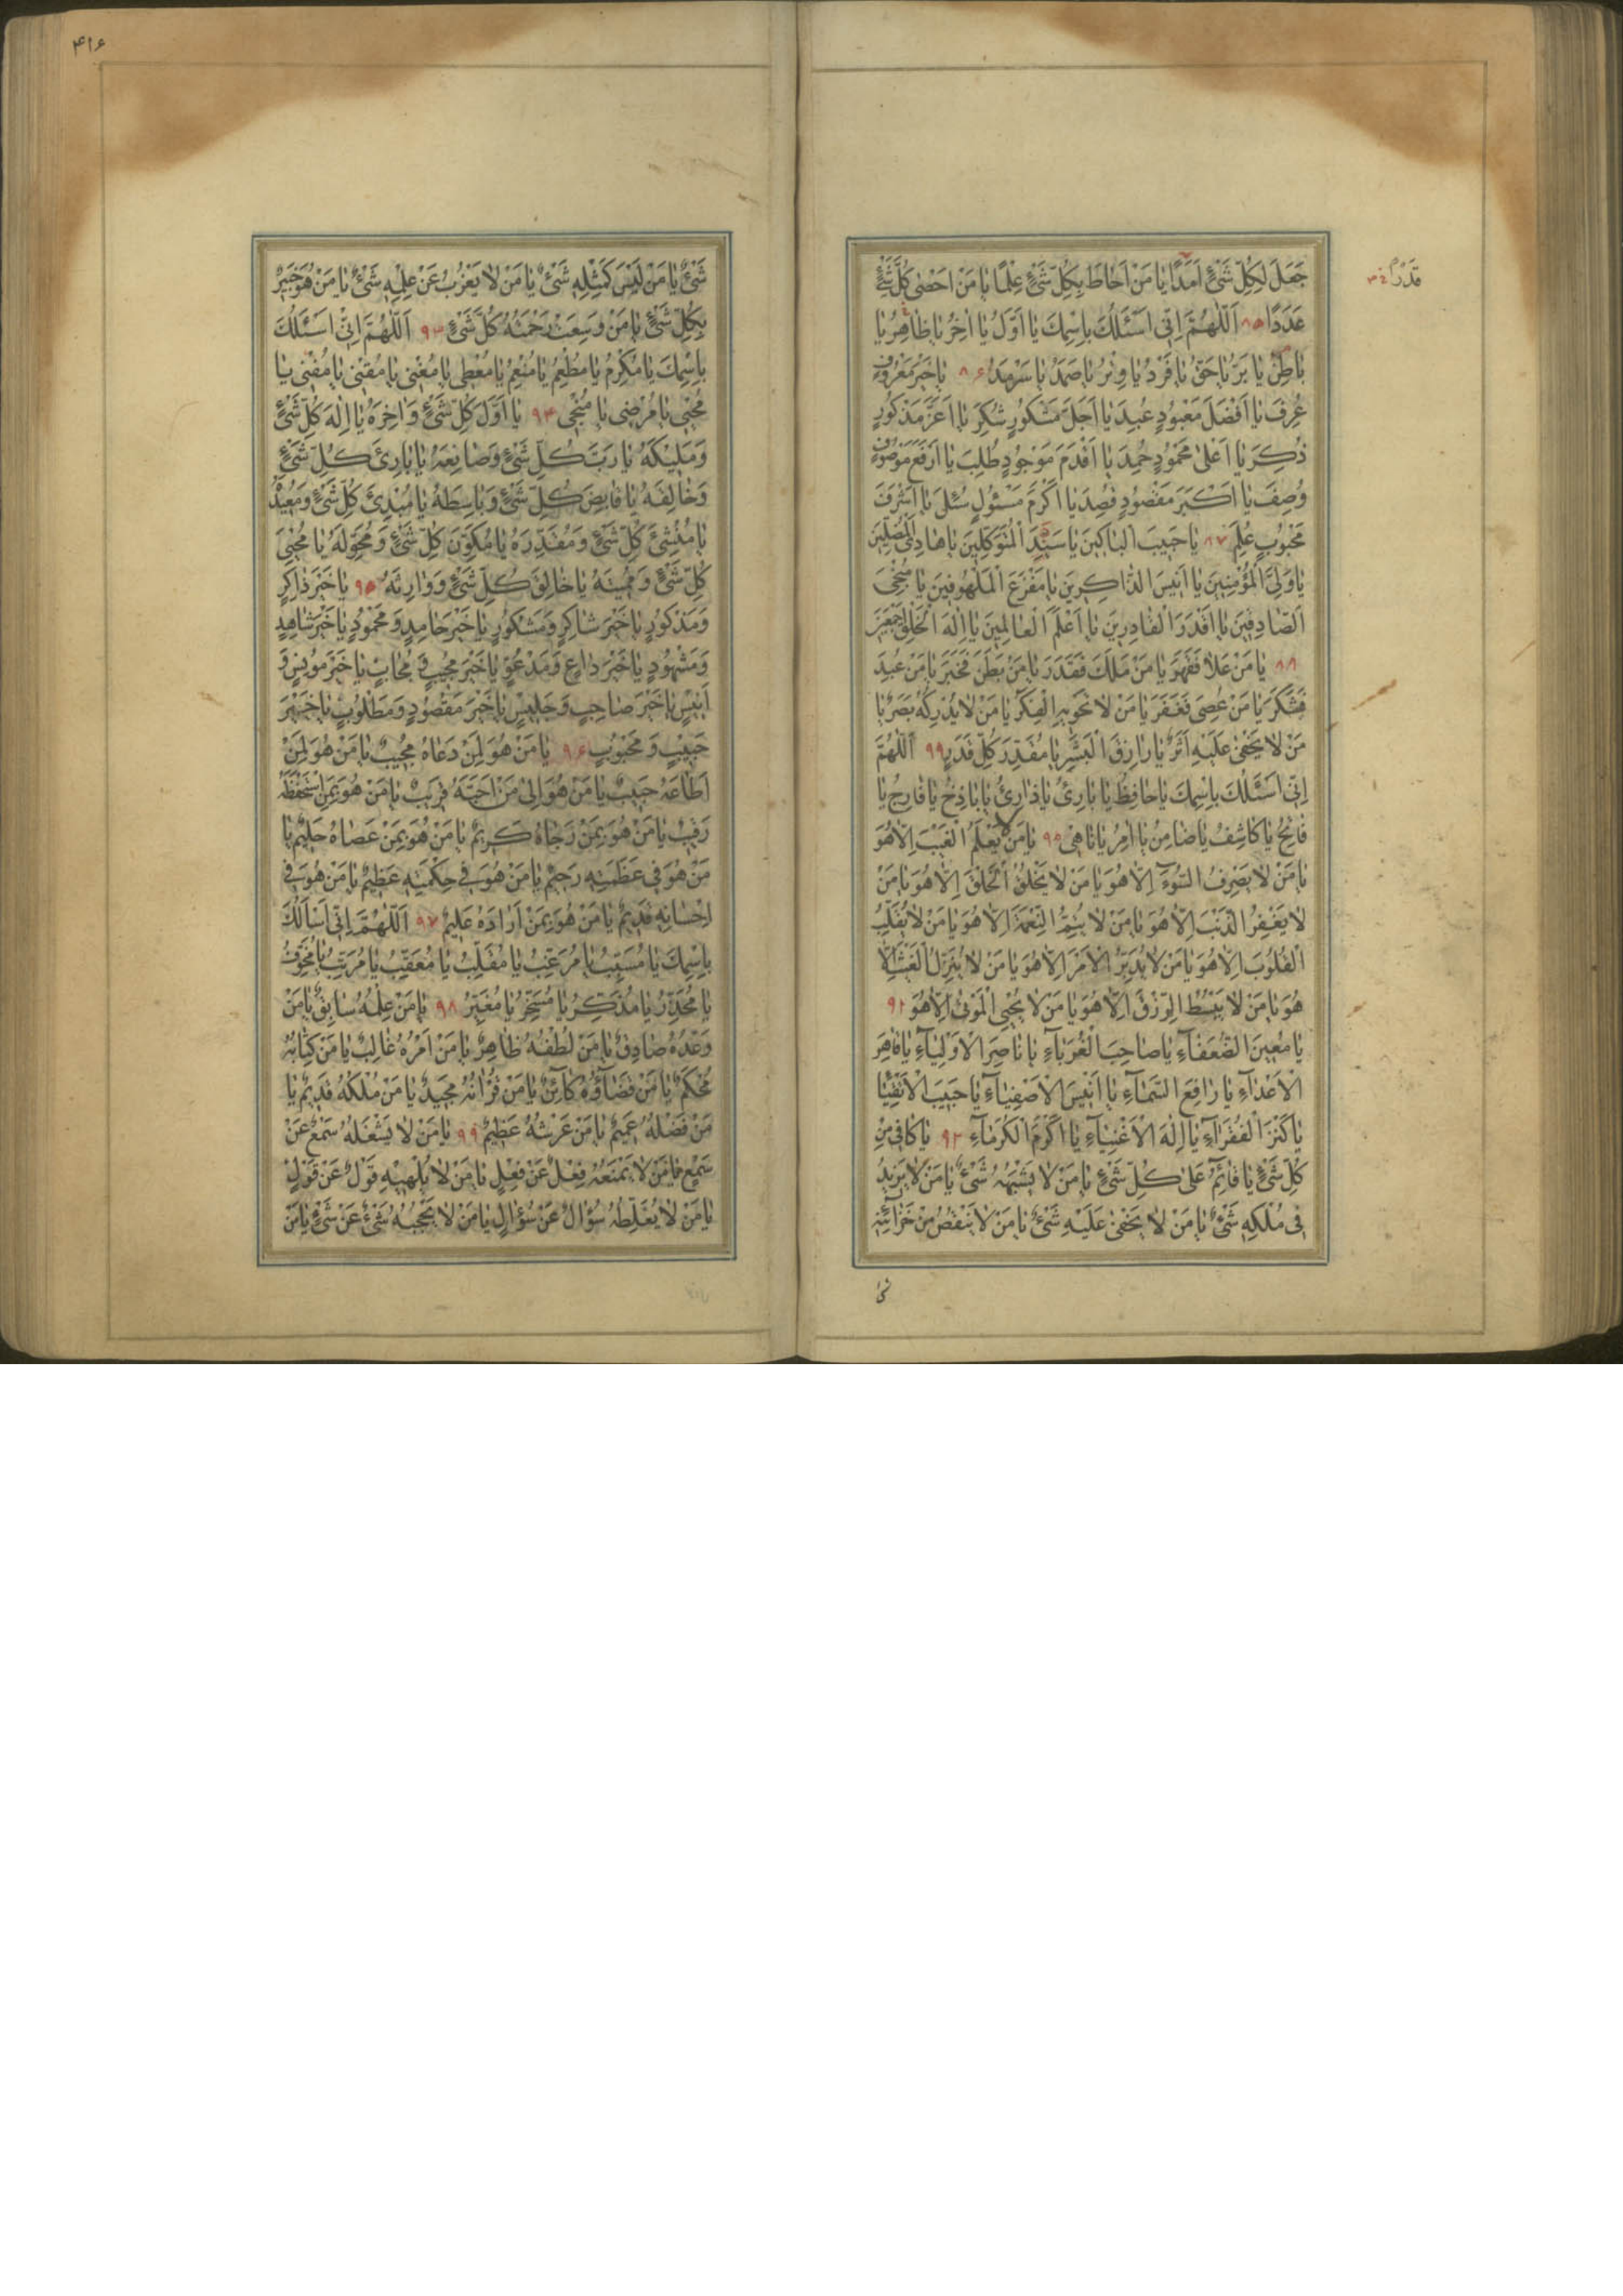 جَعَلَ لِكُلِّ شَیْءٍ اَمَدًا یا مَنْ اَحاطَ بِكُلِّ شَیْءٍ عِلْمًا یا مَنْ اَحْصٰی كُلَّ شَیْءٍ
قَدْرًا
عَدَدًا ۸۵ اَللّٰهُمَّ اِنّی اَسْئَلُكَ بِاسْمِكَ یا اَوَّلُ یا اٰخِرُ یا ظاهِرُ یا
باطِنُ یا بَرُّ یا حَقُّ یا فَرْدُ یا وِتْرُ یا صَمَدُ یا سَرْمَدُ ۸۶ یا خَیْرَ مَعْرُوفٍ
عُرِفَ یا اَفْضَلَ مَعْبُودٍ عُبِدَ یا اَجَلَّ مَشْكُورٍ شُكِرَ یا اَعَزَّ مَذْكُورٍ
ذُكِرَ یا اَعْلٰی مَحْمُودٍ حُمِدَ یا اَقْدَمَ مَوْجُودٍ طُلِبَ یا اَرْفَعَ مَوْصُوفٍ
وُصِفَ یا اَكْبَرَ مَقْصُودٍ قُصِدَ یا اَكْرَمَ مَسْئُولٍ سُئِلَ یا اَشْرَفَ
مَحْبُوبٍ عُلِمَ ۸۷ یا حَبیبَ الْباكینَ یا سَیِّدَ الْمُتَوَكِّلینَ یا هادِیَ الْمُضِلّینَ
یا وَلِیَّ الْمُؤْمِنینَ یا اَنیسَ الذّاكِرینَ یا مَفْزَعَ الْمَلْهُوفینَ یا مُنْجِیَ
الصّادِقینَ یا اَقْدَرَ الْقادِرینَ یا اَعْلَمَ الْعالِمینَ یا اِلٰهَ الْخَلْقِ اَجْمَعینَ
۸۸ یا مَنْ عَلا فَقَهَرَ یا مَنْ مَلَكَ فَقَدَرَ یا مَنْ بَطَنَ فَخَبَرَ یا مَنْ عُبِدَ
فَشَكَرَ یا مَنْ عُصِیَ فَغَفَرَ یا مَنْ لا تَحْویهِ الْفِكَرُ یا مَنْ لا یُدْرِكُهُ بَصَرٌ یا
مَنْ لا یَخْفٰی عَلَیْهِ اَثَرٌ یا رازِقَ الْبَشَرِ یا مُقَدِّرَ كُلِّ قَدَرٍ ۹۹ اَللّٰهُمَّ
اِنّی اَسْئَلُكَ بِاسْمِكَ یا حافِظُ یا بارِئُ یا ذارِئُ یا باذِخُ یا فارِجُ یا
فاتِحُ یا كاشِفُ یا ضامِنُ یا اٰمِرُ یا ناهی ۹۵ یا مَنْ لا یَعْلَمُ الْغَیْبَ اِلّا هُوَ
یا مَنْ لا یَصْرِفُ السُّوٓءَ اِلّا هُوَ یا مَنْ لا یَخْلُقُ الْخَلْقَ اِلّا هُوَ یا مَنْ
لا یَغْفِرُ الذَّنْبَ اِلّا هُوَ یا مَنْ لا یُتِمُّ النِّعْمَةَ اِلّا هُوَ یا مَنْ لا یُقَلِّبُ
الْقُلُوبَ اِلّا هُوَ یا مَنْ لا یُدَبِّرُ الْاَمْرَ اِلّا هُوَ یا مَنْ لا یُنَزِّلُ الْغَیْثَ اِلّا
هُوَ یا مَنْ لا یَبْسُطُ الرِّزْقَ اِلّا هُوَ یا مَنْ لا یُحْیِی الْمَوْتٰی اِلّا هُوَ ۹۱
یا مُعینَ الضُّعَفآءِ یا صاحِبَ الْغُرَبآءِ یا ناصِرَ الْاَوْلِیآءِ یا قاهِرَ
الْاَعْدآءِ یا رافِعَ السَّمآءِ یا اَنیسَ الْاَصْفِیآءِ یا حَبیبَ الْاَتْقِیا
یا كَنْزَ الْفُقَرآءِ یا اِلٰهَ الْاَغْنِیآءِ یا اَكْرَمَ الْكُرَمآءِ ۹۲ یا كافی مِنْ
كُلِّ شَیْءٍ یا قآئِمُ عَلٰی كُلِّ شَیْءٍ یا مَنْ لا یُشْبِهُهُ شَیْءٌ یا مَنْ لا یَزیدُ
فی مُلْكِهٖ شَیْءٌ یا مَنْ لا یَخْفٰی عَلَیْهِ شَیْءٌ یا مَنْ لا یَنْقُصُ مِنْ خَزآئِنِهٖ
شئ
۴۱۶
شَیْءٌ یا مَنْ لَیْسَ كَمِثْلِهٖ شَیْءٌ یا مَنْ لا یَعْزُبُ عَنْ عِلْمِهٖ شَیْءٌ یا مَنْ هُوَ خَبیرٌ
بِكُلِّ شَیْءٍ یا مَنْ وَسِعَتْ رَحْمَتُهُ كُلَّ شَیْءٍ ۹۳ اَللّٰهُمَّ اِنّی اَسْئَلُكَ
بِاسْمِكَ یا مُكْرِمُ یا مُطْعِمُ یا مُنْعِمُ یا مُعْطی یا مُغْنی یا مُقْنی یا مُفْنی یا
مُحْیی یا مُرْضی یا مُنْجی ۹۴ یا اَوَّلَ كُلِّ شَیْءٍ وَاٰخِرَهُ یا اِلٰهَ كُلِّ شَیْءٍ
وَمَلیكَهُ یا رَبَّ كُلِّ شَیْءٍ وَصانِعَهُ یا بارِئَ كُلِّ شَیْءٍ
وَخالِقَهُ یا قابِضَ كُلِّ شَیْءٍ وَباسِطَهُ یا مُبْدِئَ كُلِّ شَیْءٍ وَمُعیدَهُ
یا مُنْشِئَ كُلِّ شَیْءٍ وَمُقَدِّرَهُ یا مُكَوِّنَ كُلِّ شَیْءٍ وَمُحَوِّلَهُ یا مُحْیِیَ
كُلِّ شَیْءٍ وَمُمیتَهُ یا خالِقَ كُلِّ شَیْءٍ وَوارِثَهُ ۹۵ یا خَیْرَ ذاكِرٍ
وَمَذْكُورٍ یا خَیْرَ شاكِرٍ وَمَشْكُورٍ یا خَیْرَ حامِدٍ وَمَحْمُودٍ یا خَیْرَ شاهِدٍ
وَمَشْهُودٍ یا خَیْرَ داعٍ وَمَدْعُوٍّ یا خَیْرَ مُجیبٍ وَمُجابٍ یا خَیْرَ مُونِسٍ وَ
اَنیسٍ یا خَیْرَ صاحِبٍ وَجَلیسٍ یا خَیْرَ مَقْصُودٍ وَمَطْلُوبٍ یا خَیْرَ
حَبیبٍ وَمَحْبُوبٍ ۹۶ یا مَنْ هُوَ لِمَنْ دَعاهُ مُجیبٌ یا مَنْ هُوَ لِمَنْ
اَطاعَهُ حَبیبٌ یا مَنْ هُوَ اِلٰی مَنْ اَحَبَّهُ قَریبٌ یا مَنْ هُوَ بِمَنِ اسْتَحْفَظَهُ
رَقیبٌ یا مَنْ هُوَ بِمَنْ رَجاهُ كَریمٌ یا مَنْ هُوَ بِمَنْ عَصاهُ حَلیمٌ یا
مَنْ هُوَ فی عَظَمَتِهٖ رَحیمٌ یا مَنْ هُوَ فی حِكْمَتِهٖ عَظیمٌ یا مَنْ هُوَ فی
اِحْسانِهٖ قَدیمٌ یا مَنْ هُوَ بِمَنْ اَرادَهُ عَلیمٌ ۹۷ اَللّٰهُمَّ اِنّی اَسْاَلُكَ
بِاسْمِكَ یا مُسَبِّبُ یا مُرَغِّبُ یا مُقَلِّبُ یا مُعَقِّبُ یا مُرَتِّبُ یا مُخَوِّفُ
یا مُحَذِّرُ یا مُذَكِّرُ یا مُسَخِّرُ یا مُغَیِّرُ ۹۸ یا مَنْ عِلْمُهُ سابِقٌ یا مَنْ
وَعْدُهُ صادِقٌ یا مَنْ لُطْفُهُ ظاهِرٌ یا مَنْ اَمْرُهُ غالِبٌ یا مَنْ كِتابُهُ
مُحْكَمٌ یا مَنْ قَضآؤُهُ كآئِنٌ یا مَنْ قُرْاٰنُهُ مَجیدٌ یا مَنْ مُلْكُهُ قَدیمٌ یا
مَنْ فَضْلُهُ عَمیمٌ یا مَنْ عَرْشُهُ عَظیمٌ ۹۹ یا مَنْ لا یَشْغَلُهُ سَمْعٌ عَنْ
سَمْعٍ یا مَنْ لا یَمْنَعُهُ فِعْلٌ عَنْ فِعْلٍ یا مَنْ لا یُلْهیهِ قَوْلٌ عَنْ قَوْلٍ
یا مَنْ لا یُغَلِّطُهُ سُؤالٌ عَنْ سُؤالٍ یا مَنْ لا یَحْجُبُهُ شَیْءٌ عَنْ شَیْءٍ یا مَنْ